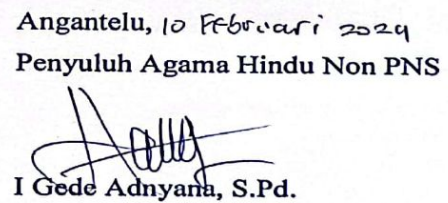 Angantelu, 10 Februari 2024
Penyuluh Agama Hindu Non PNS
I Gede Adnyana, S.Pd.